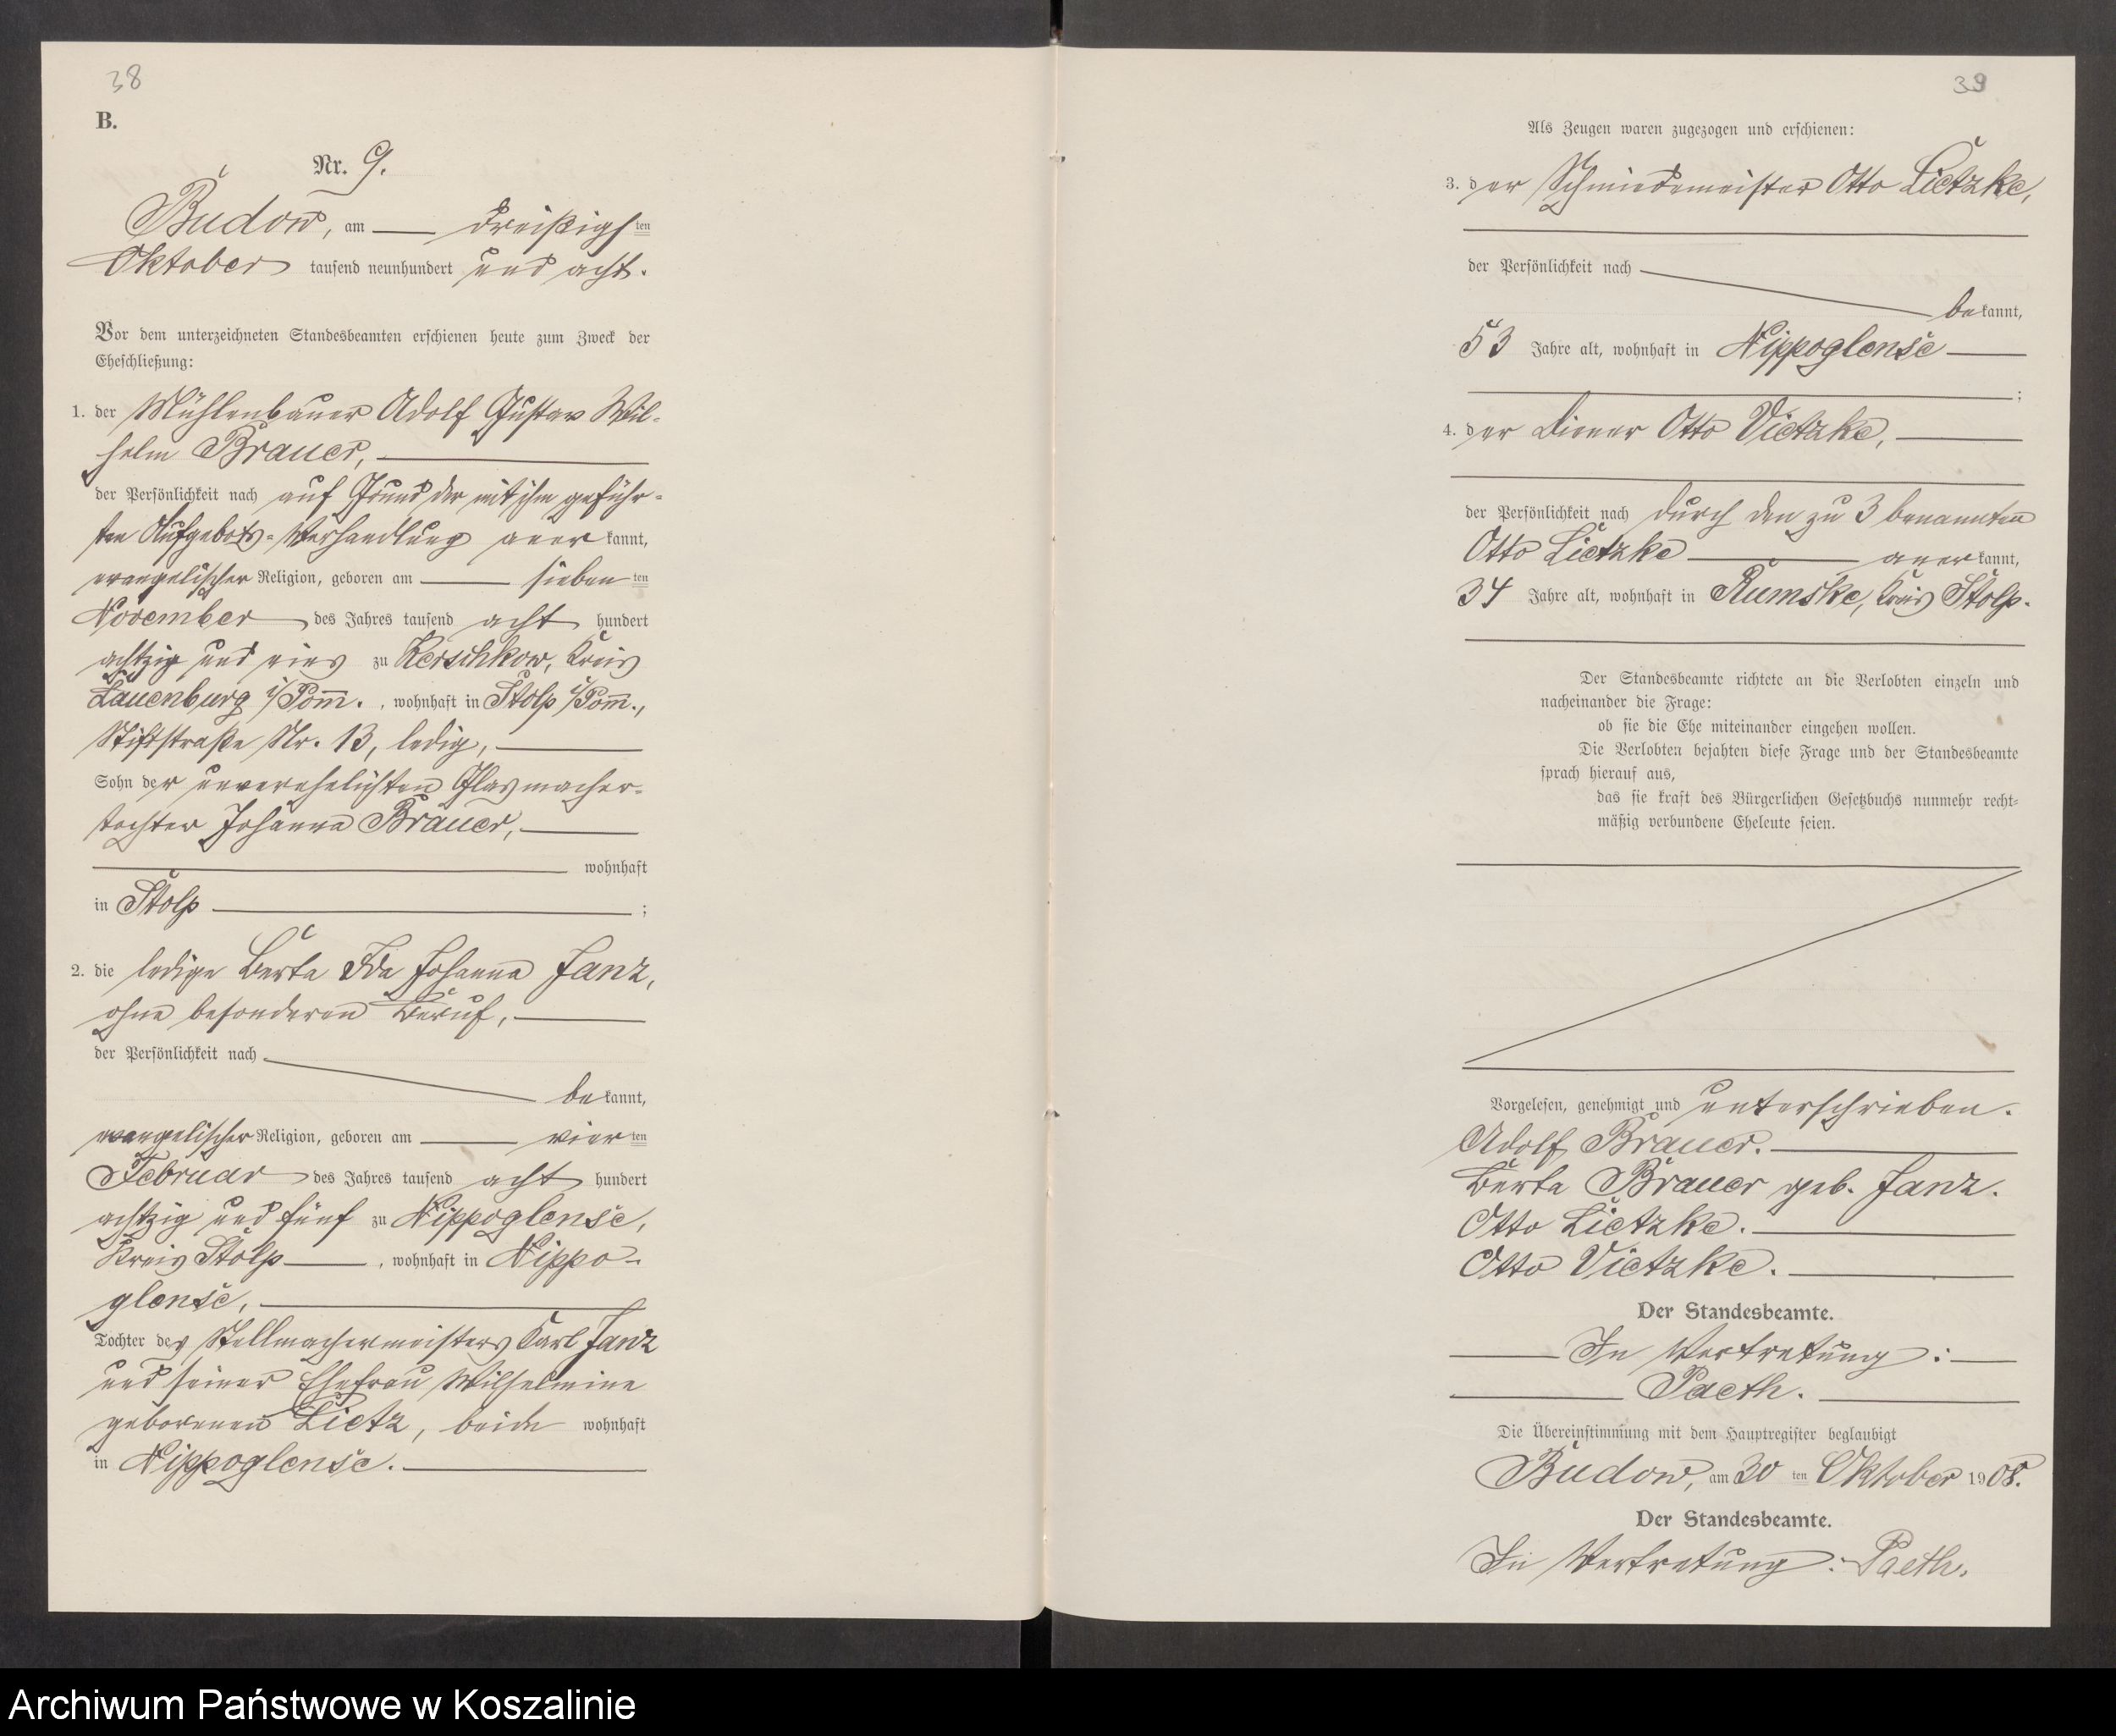 38
B.
Nr. 9.
Budow, am dreißigsten
Oktober tausend neunhundert und acht.
Vor dem unterzeichneten Standesbeamten erschienen heute zum Zweck der
Eheschließung:
1. der Mühlenbauer Adolf Gustav Wil-
helm Brauer,
der Persönlichkeit nach auf Grund der mit ihm geführ-
ten Aufgebots-Verhandlung anerkannt,
evangelischer Religion, geboren am siebenten
November des Jahres tausend acht hundert
achtzig und eins zu Kerschkow, Kreis
Lauenburg i/Pomm., wohnhaft in Stolp i/Pomm.,
Stiftstraße Nr. 13, ledig,
Sohn der unverehelichten Glasmacher-
tochter Johanna Brauer,
wohnhaft
in Stolp ;
2. die ledige Berta Ida Johanna Janz,
ohne besonderen Beruf,
der Persönlichkeit nach
bekannt,
evangelischer Religion, geboren am vierten
Februar des Jahres tausend acht hundert
achtzig und fünf zu Nippoglense,
Kreis Stolp, wohnhaft in Nippo-
glense,
Tochter des Stellmachermeisters Karl Janz
und seiner Ehefrau Wilhelmine
geborenen Lietz, beide wohnhaft
in Nippoglense.
39
Als Zeugen waren zugezogen und erschienen:
3. der Schmiedemeister Otto Lietzke,
der Persönlichkeit nach
bekannt,
53 Jahre alt, wohnhaft in Nippoglense
;
4. der Diener Otto Vietzke,
der Persönlichkeit nach durch den zu 3 benannten
Otto Lietzke anerkannt,
34 Jahre alt, wohnhaft in Rumske, Kreis Stolp.
Der Standesbeamte richtete an die Verlobten einzeln und
nacheinander die Frage:
ob sie die Ehe miteinander eingehen wollen.
Die Verlobten bejahten diese Frage und der Standesbeamte
sprach hierauf aus,
das sie kraft des Bürgerlichen Gesetzbuchs nunmehr recht-
mäßig verbundene Eheleute seien.
Vorgelesen, genehmigt und unterschrieben.
Adolf Brauer.
Berta Brauer geb. Janz.
Otto Lietzke.
Otto Vietzke.
Der Standesbeamte.
In Vertretung:
Paeth.
Die Übereinstimmung mit dem Hauptregister beglaubigt
Budow, am 30 ten Oktober 1908.
Der Standesbeamte.
In Vertretung: Paeth.
Archiwum Państwowe w Koszalinie